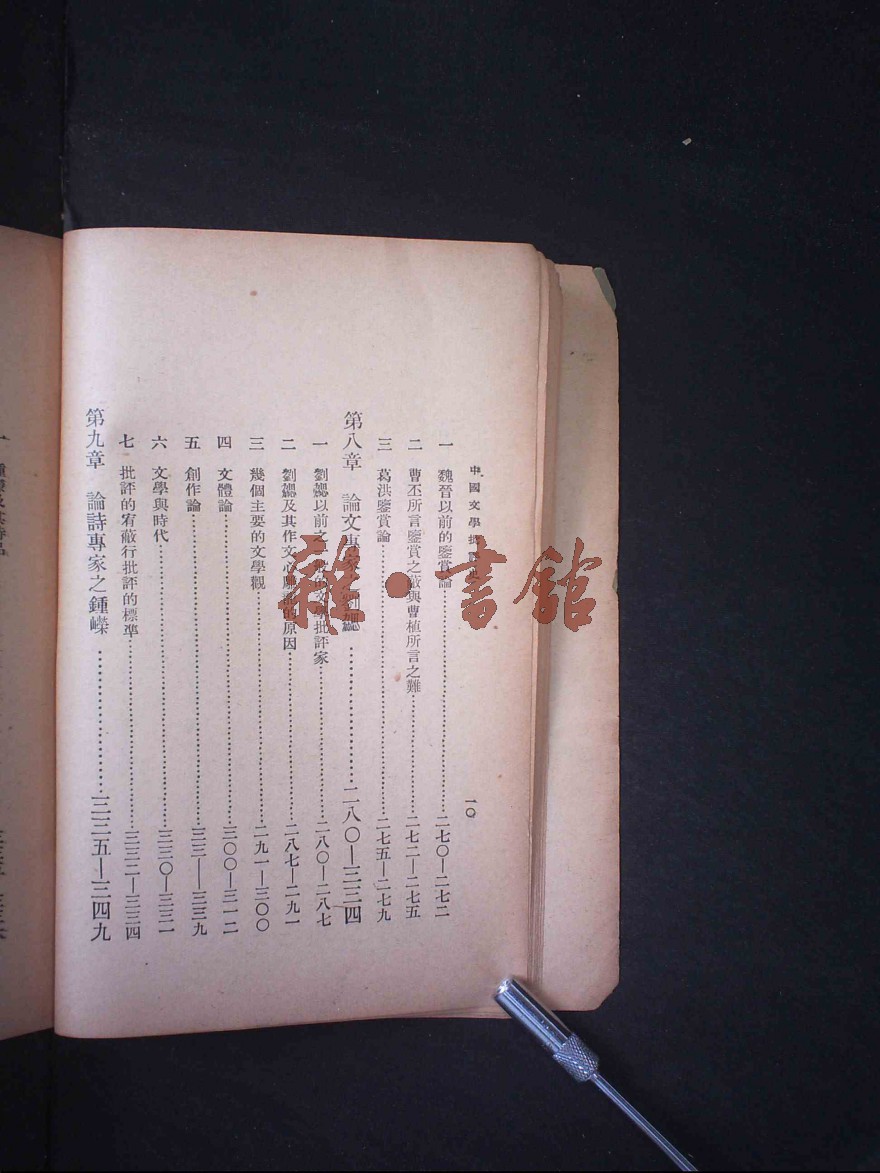 中國文學批
一〇
一 魏晉以前的鑒賞論 二七〇—二七二
二 曹丕所言鑒賞之蔽與曹植所言之難 二七二—二七五
三 葛洪鑒賞論 二七五—二七九
第八章 論文專家 劉勰 二八〇—三三四
一 劉勰以前之 的文學批評家 二八〇—二八七
二 劉勰及其作文心雕龍的原因 二八七—二九一
三 幾個主要的文學觀 二九一—三〇〇
四 文體論 三〇〇—三一二
五 創作論 三三——三三九
六 文學與時代 三三〇—三三一
七 批評的宥蔽行批評的標準 三三二—三三四
第九章 論詩專家之鍾嶸 三三五—三四九
雜·書館